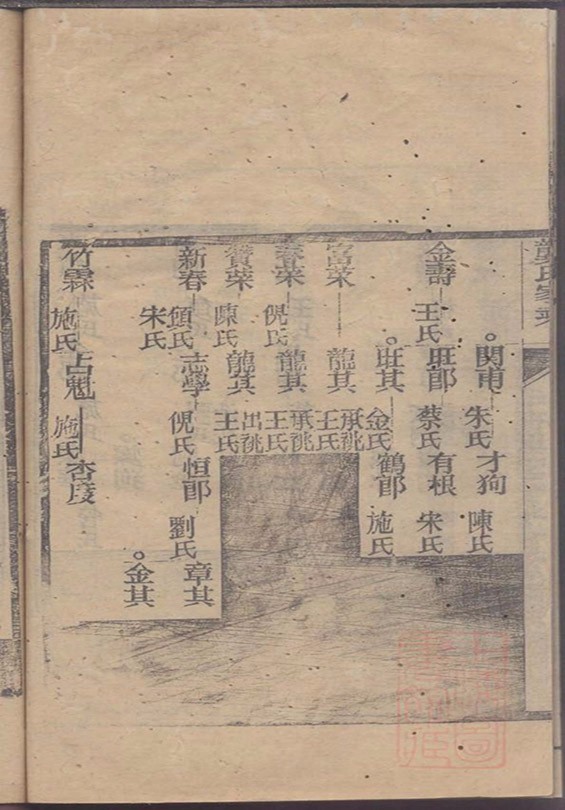 龔氏家乘
関甫 朱氏 才狗 陳氏
金壽 王氏 旺郎 蔡氏 有根 宋氏
旺其 金氏 鶴郎 施氏
富荣 龍其 承祧 王氏
春荣 倪氏 龍其 承祧 王氏
贊荣 陳氏 龍其 出祧 王氏
新春 顧氏 志學 倪氏 恒郎 劉氏 章其
宋氏 金其
竹霖 施氏 占魁 施氏 杏陔